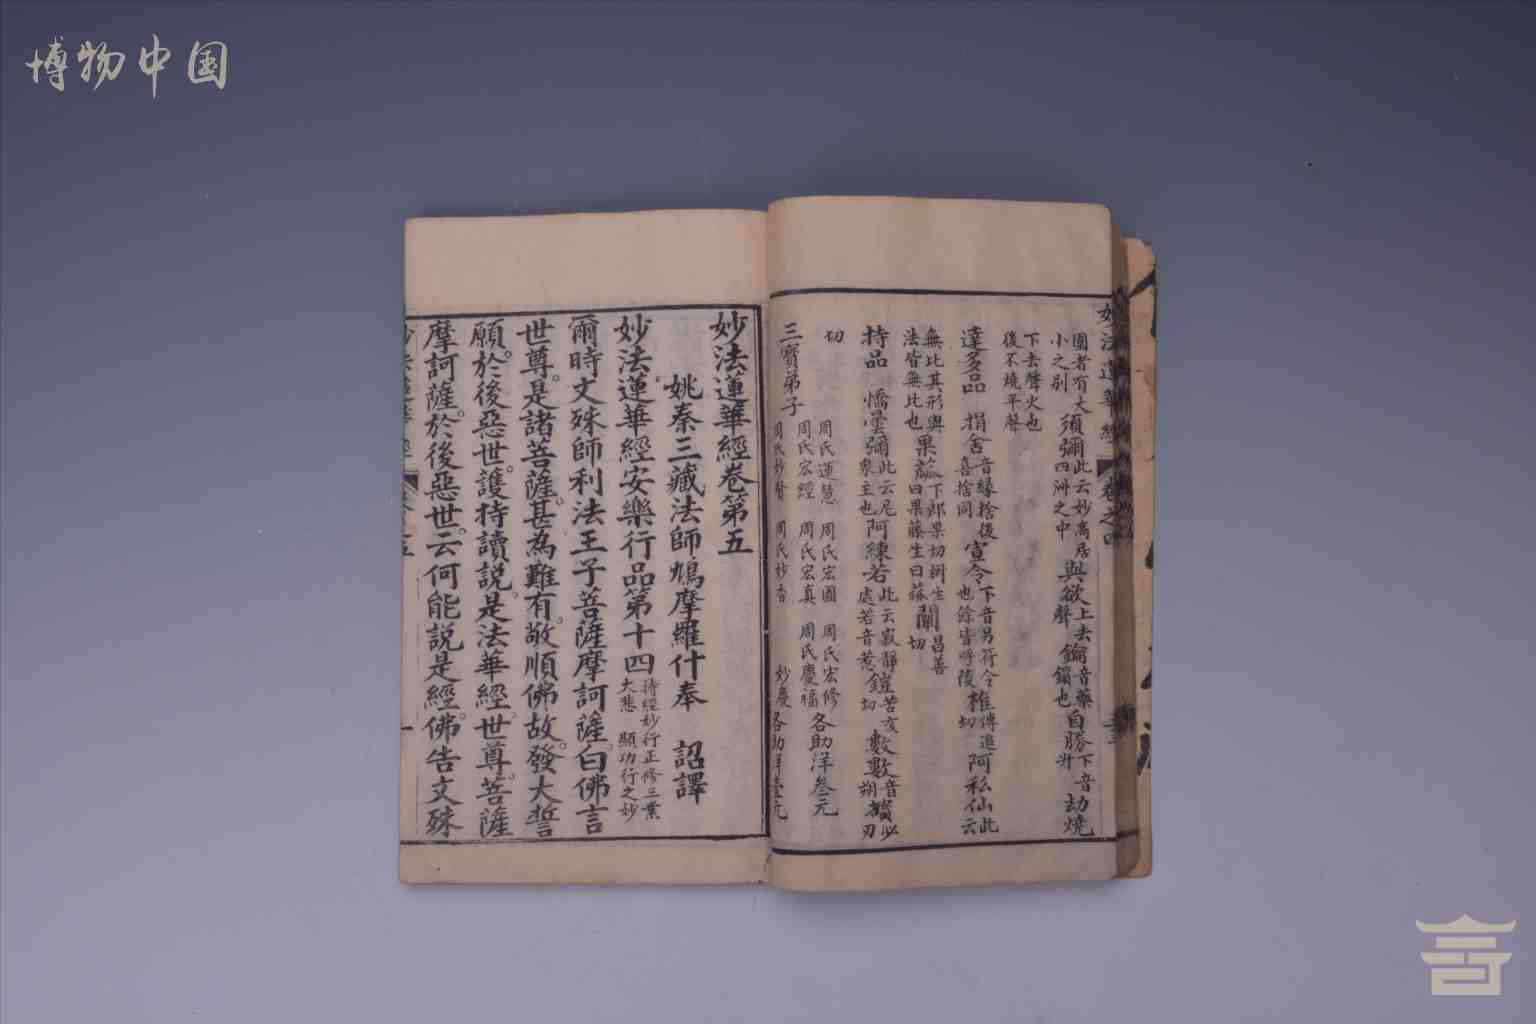 博物中国
妙法蓮華經
卷之四
圍者有大
小之別
須彌
此云妙高居
四洲之中
與欲
上去
聲
鑰
音藥
鎖也
自勝
下音
升
劫燒
下去聲火也
後不燒平聲
達多品
捐舍
音緣捨後
喜捨同
宣令
下音另符令
也餘皆呼陵
椎
傳追
切
阿私仙
此
云
無比其形與
法皆無比也
果蓏
下郎果切樹生
曰果藤生曰蓏
闡
昌善
切
持品
憍曇彌
此云尼
衆主也
阿練若
此云寂靜
處若音惹
鎧
苦亥
切
數數
音
朔
擯
必
刃
切
三寶弟子
周氏運慧 周氏宏圓 周氏宏修
周氏宏經 周氏宏真 周氏慶福
各助洋叁元
周氏妙賢 周氏妙香 妙慶
各助洋壹元
妙法蓮華經卷第五
姚秦三藏法師鳩摩羅什奉 詔譯
妙法蓮華經安樂行品第十四
持經妙行正修三業
大悲 顯功行之妙
爾時文殊師利法王子菩薩摩訶薩。白佛言
世尊。是諸菩薩。甚為難有。敬順佛故。發大誓
願。於後惡世。護持讀說。是法華經。世尊。菩薩
摩訶薩。於後惡世。云何能說是經。佛告文殊
妙法蓮華經
卷之五
一